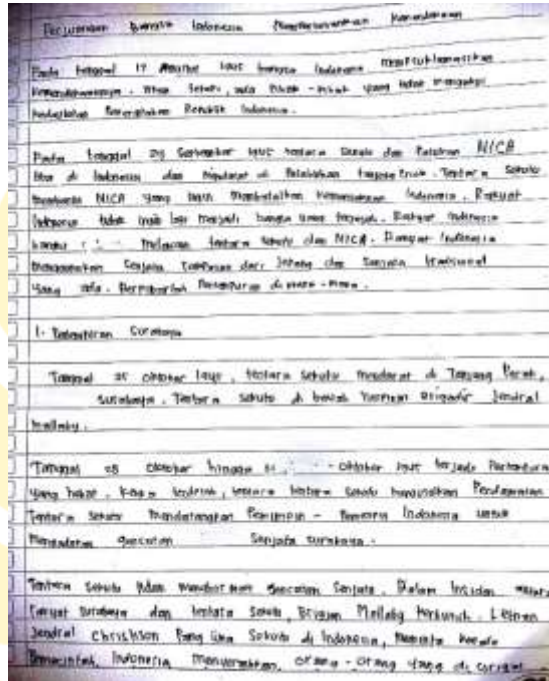 Perjuangan Bangsa Indonesia Mempertahankan Kemerdekaan
Pada tanggal 17 Agustus 1945 bangsa Indonesia memproklamasikan
Kemerdekaannya. Tetapi, ada pihak-pihak yang tidak mengakui
Republik Indonesia.
Pada tanggal 29 September 1945 tentara Sekutu dan NICA
tiba di Indonesia dan mendarat di Pelabuhan Tanjung Priok. Tentara Sekutu
membawa NICA yang ingin membatalkan Kemerdekaan Indonesia. Rakyat
Indonesia tidak ingin lagi menjadi bangsa yang terjajah. Rakyat Indonesia
melawan tentara Sekutu dan NICA. Rakyat Indonesia
menggunakan Senjata rampasan dari Jepang dan Senjata tradisional
yang ada. Pertempuran di mana-mana.
1. Pertempuran Surabaya
Tanggal 25 Oktober 1945, tentara sekutu mendarat di Tanjung Perak,
Surabaya. Tentara sekutu di bawah Brigadir Jendral
Mallaby.
Tanggal 28 Oktober hingga 31 - Oktober 1945 terjadi Pertempuran
yang hebat. terdesak, tentara Sekutu mengusulkan Perdamaian
Tentara Sekutu mendatangkan Pemimpin - Pemimpin Indonesia untuk
gencatan Senjata Surabaya.
Tentara Sekutu tidak gencatan Senjata. Dalam Insiden antara
rakyat Surabaya dan tentara sekutu, Brigjen Mallaby terbunuh. Letnan
Jendral Christison Panglima Sekutu di Indonesia, meminta kepada
Pemerintah Indonesia menyerahkan orang-orang yang dicurigai